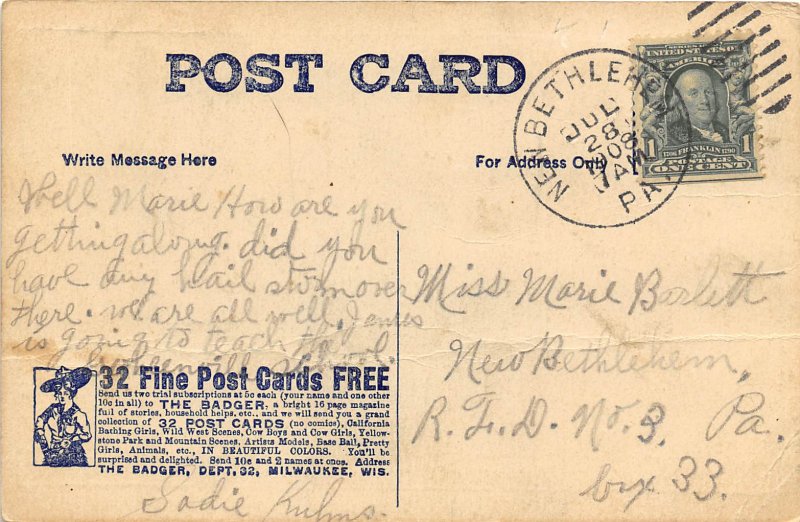 POST CARD
Write Message Here
For Address Only
NEW BETHLEHEM
JUL
28
1908
PA.
SERIES 1902
UNITED STATES OF
AMERICA
1 1706 FRANKLIN 1790 1
POSTAGE
ONE CENT
Well Marie How are you
getting along. did you
have any hail storm over
there. we are all well. James
is going to teach the
school.
Miss Marie Barlett
New Bethlehem,
R. F. D. No. 3. Pa.
bux 33.
32 Fine Post Cards FREE
Send us two trial subscriptions at 5c each (your name and one other
10c in all) to THE BADGER, a bright 16 page magazine
full of stories, household helps, etc., and we will send you a grand
collection of 32 POST CARDS (no comics), California
Bathing Girls, Wild West Scenes, Cow Boys and Cow Girls, Yellow-
stone Park and Mountain Scenes, Artists Models, Base Ball, Pretty
Girls, Animals, etc., IN BEAUTIFUL COLORS. You'll be
surprised and delighted. Send 10c and 2 names at once. Address
THE BADGER, DEPT. 32, MILWAUKEE, WIS.
Sadie Kuhns.